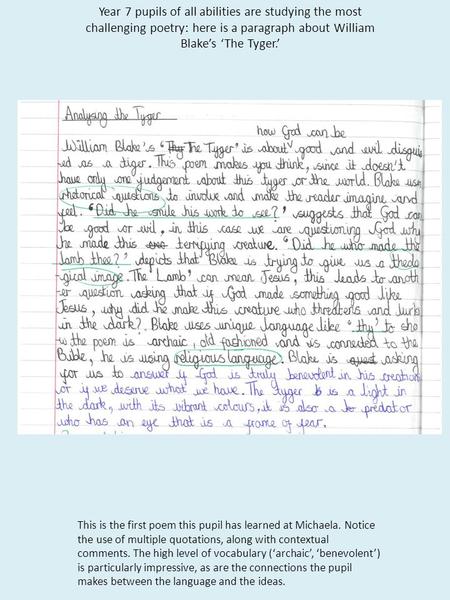 Year 7 pupils of all abilities are studying the most
challenging poetry: here is a paragraph about William
Blake's ‘The Tyger.’
Analysing the Tyger
how God can be
William Blake's ‘The Tyger’ is about good and evil disguis
ed as a tiger. This poem makes you think, since it doesn't
have only one judgement about this tyger or the world. Blake uses
rhetorical questions to involve and make the reader imagine and
feel. ‘Did he smile his work to see?’ suggests that God can
be good or evil, in this case we are questioning God why
he made this terrifying creature. ‘Did he who made the
lamb thee?’ depicts that Blake is trying to give us a theolo
gical image. The ‘Lamb’ can mean Jesus, this leads to anoth
er question asking that if God made something good like
Jesus, why did he make this creature who threatens and lurks
in the dark? Blake uses unique language like ‘thy’ to sho
w the poem is archaic, old fashioned and is connected to the
Bible, he is using religious language. Blake is asking
for us to answer if God is truly benevolent in his creation
or if we deserve what we have. The tyger is a light in
the dark, with its vibrant colours, it is also a predator
who has an eye that is a frame of fear.
This is the first poem this pupil has learned at Michaela. Notice
the use of multiple quotations, along with contextual
comments. The high level of vocabulary (‘archaic’, ‘benevolent’)
is particularly impressive, as are the connections the pupil
makes between the language and the ideas.